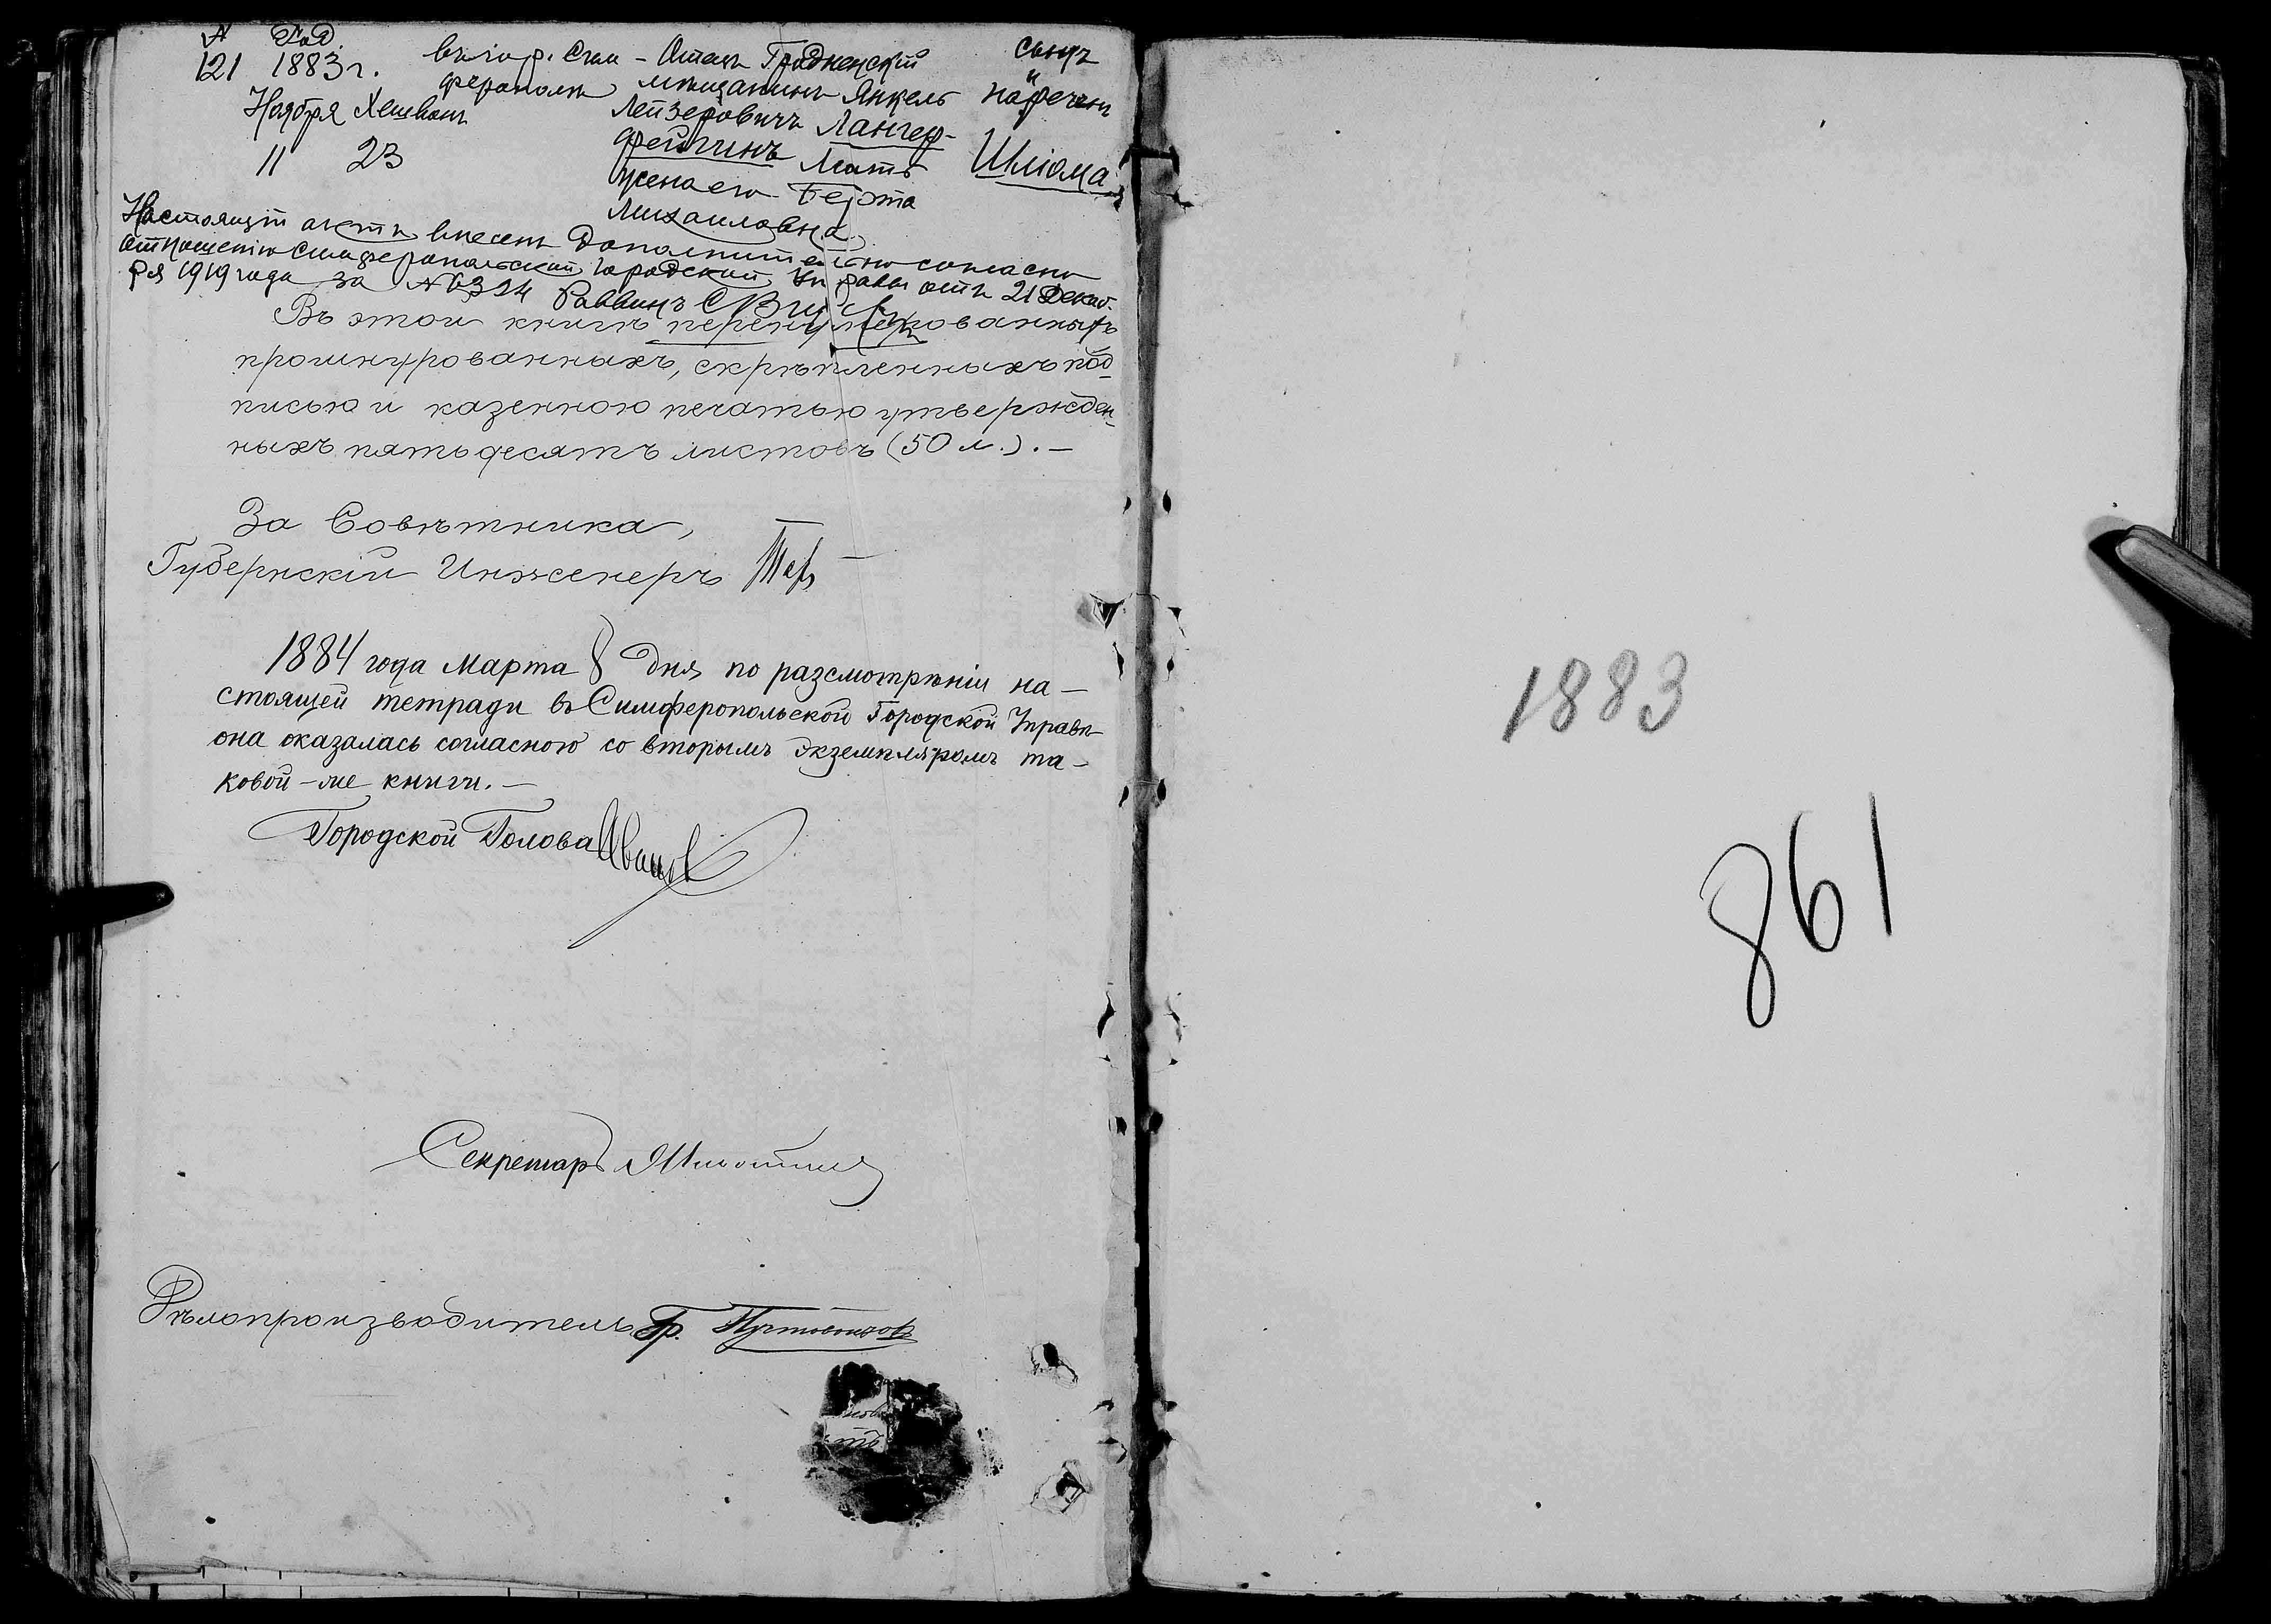 № Год
121 1883 г. въ гор. Сим- Отецъ Гродненскій сынъ
ферополѣ мѣщанинъ Янкель и нареченъ
Ноября Хешванъ Лейзеровичъ Лангер-
11 23 фейгинъ Мать Шліома
жена его Берта
Михаиловна
Настоящій актъ внесенъ дополнительно согласно
отношенію Симферопольской Городской Управы отъ 21 Декаб-
ря 1919 года за № 6324 Раввинъ
Въ этой книгѣ перенумерованныхъ
прошнурованныхъ, скрѣпленныхъ под-
писью и казенною печатью утвержден-
ныхъ пятьдесятъ листовъ (50 л.). —
За Совѣтника,
Губернскій Инженеръ
1884 года Марта 8 дня по разсмотрѣніи на-
стоящей тетради въ Симферопольской Городской Управѣ
она оказалась согласною со вторымъ экземпляромъ та-
ковой-же книги. —
Городской Голова Ивановъ
Секретарь
Дѣлопроизводитель Гр.
1883
861